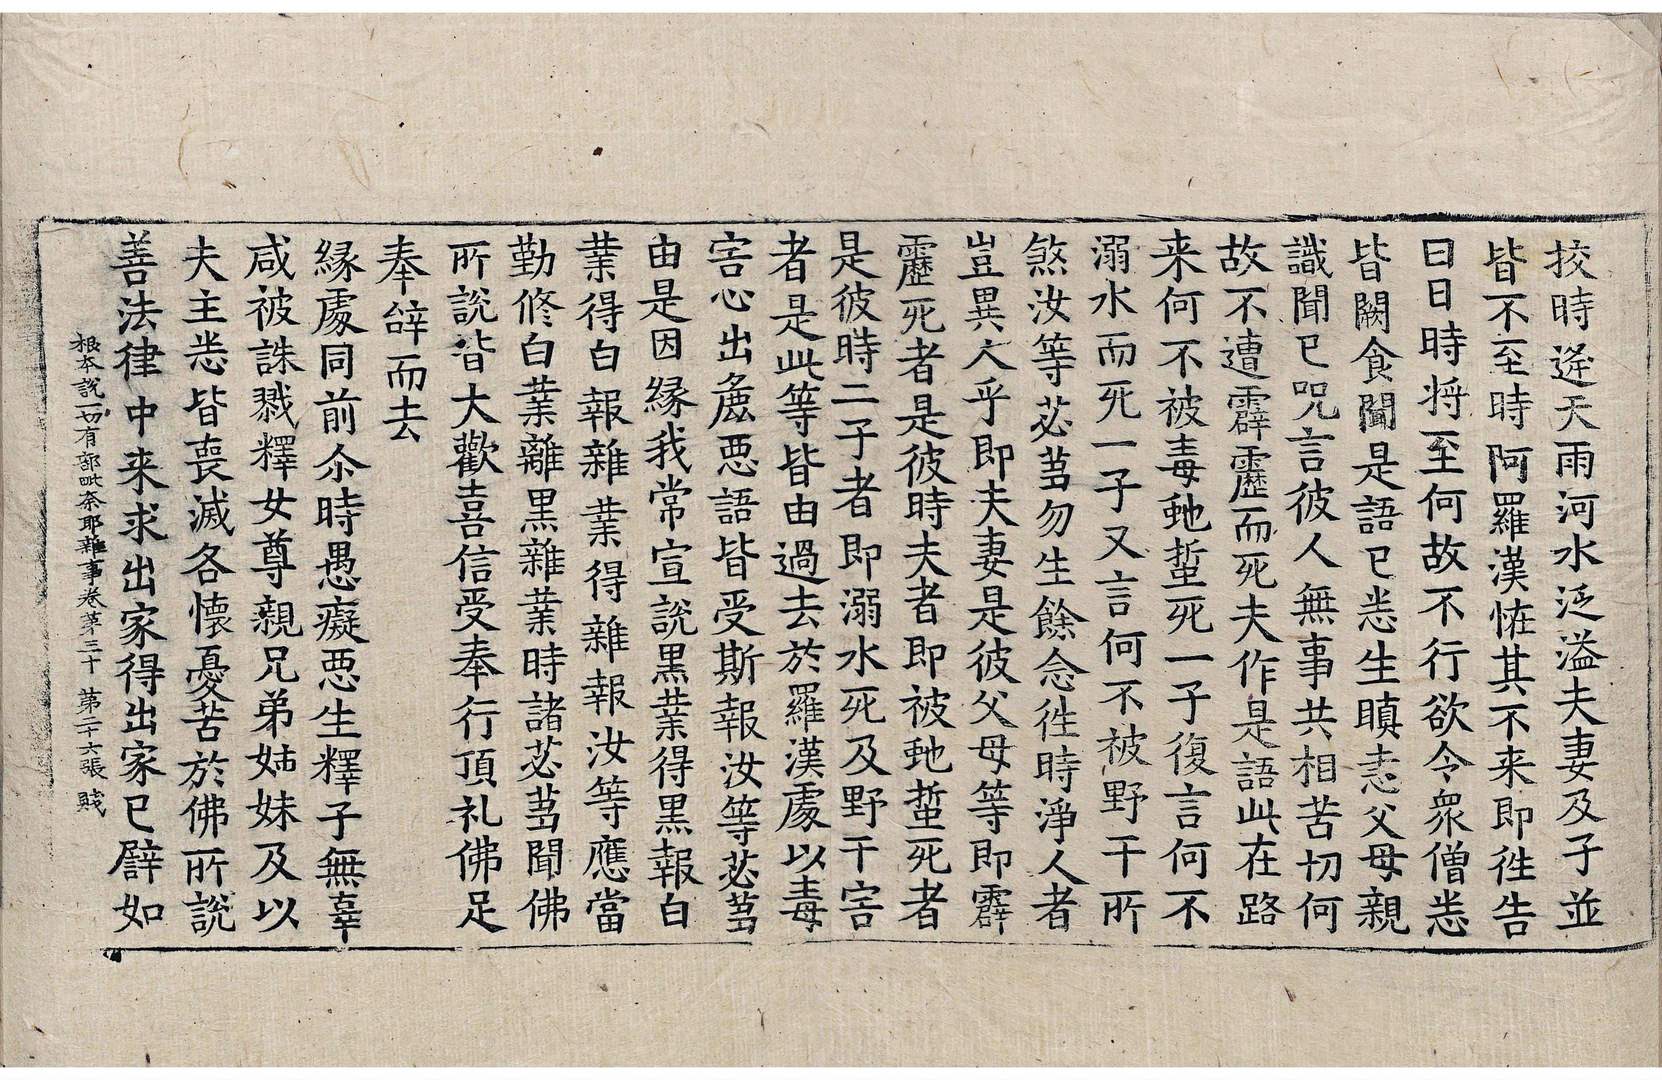 挍時遅天雨河水泛溢夫妻及子並
皆不至時阿羅漢恠其不来即徃告
曰日時将至何故不行欲令衆僧悉
皆闕食聞是語已悉生瞋恚父母親
識聞已咒言彼人無事共相苦切何
故不遭霹靂而死夫作是語此在路
来何不被毒虵蜇死一子復言何不
溺水而死一子又言何不被野干所
煞汝等苾蒭勿生餘念徃時淨人者
豈異人乎即夫妻是彼父母等即霹
靂死者是彼時夫者即被虵蜇死者
是彼時二子者即溺水死及野干害
者是此等皆由過去於羅漢處以毒
害心出麁惡語皆受斯報汝等苾蒭
由是因縁我常宣說黒業得黒報白
業得白報雜業得雜報汝等應當
勤修白業離黒雜業時諸苾蒭聞佛
所說皆大歡喜信受奉行頂礼佛足
奉辝而去
縁處同前尒時愚癡惡生釋子無辜
咸被誅戮釋女尊親兄弟姉妹及以
夫主悉皆喪滅各懷憂苦於佛所說
善法律中来求出家得出家已譬如
根本說一切有部毗奈耶雜事卷第三十 第二十六張 賤